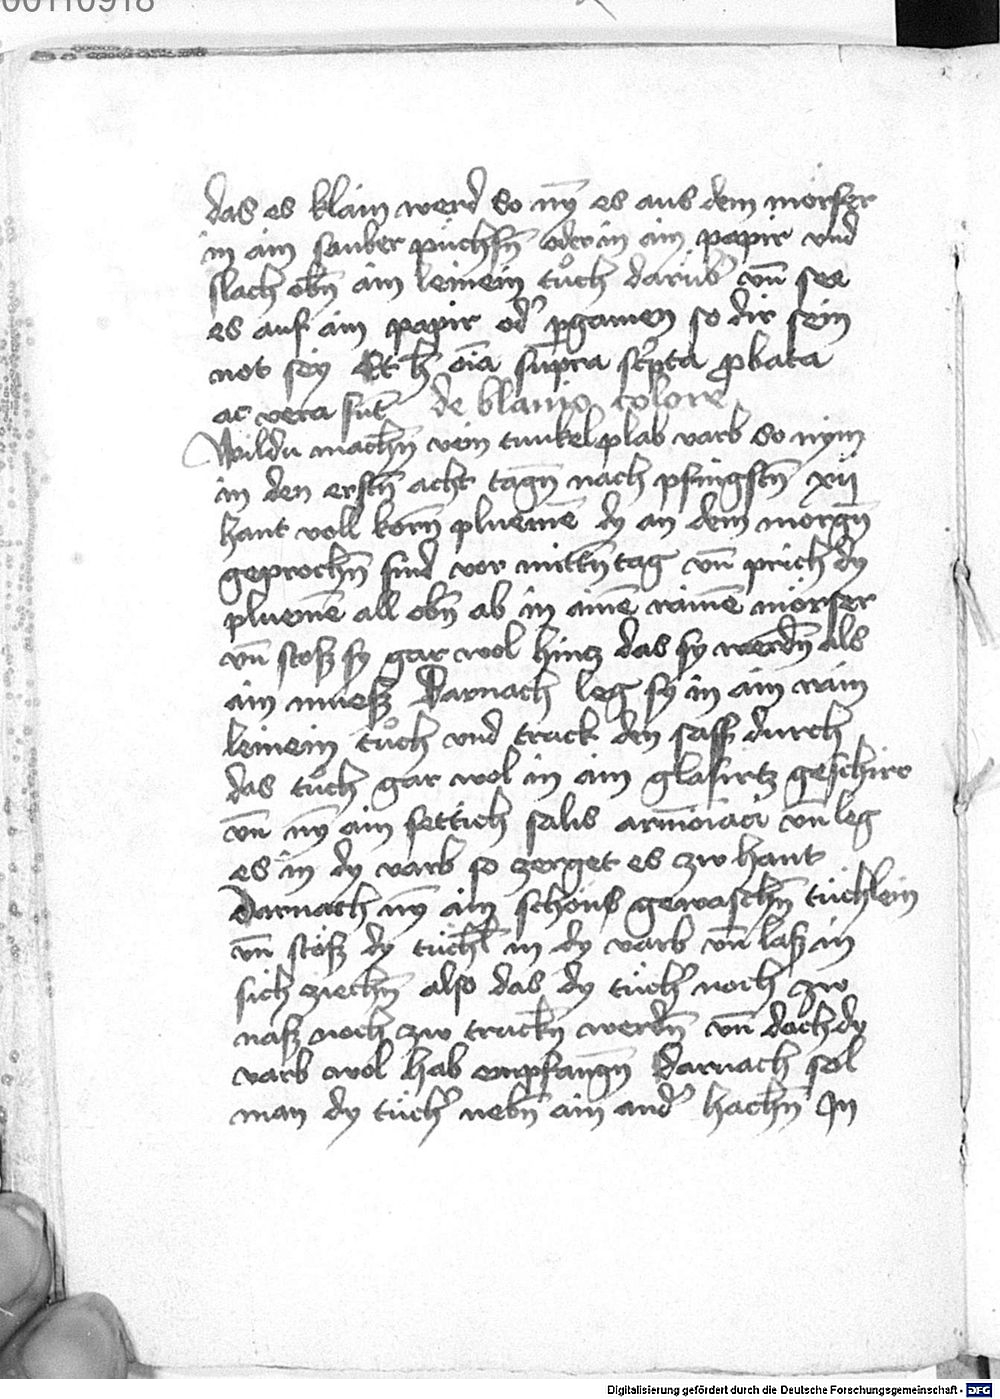 00110918
das es klain werd so ny̅ es aus dem mörser
in ain sauber püchsn̅ oder in ain papir vnd
slach obn̅ ain leinein tůch darüb' vn̅ see
es auf ain papir od' p̲gamen so dir sein
not sey Et h̅ o̅ia supra sc̊pta ꝓbata
ac vera su̅t de blauio colore
Wildu mach̅n vein tunkel plab varb so nym
in den erstn̅ acht tagn̅ nach pfingstn̅ xij
hant voll korn̅ plueme̅ dy an dem morgn̅
geproch̅n sind vor mittn̅tag vn̅ prich dy
plueme̅ all obn̅ ab in aine̅ raine̅ mörser
vn̅ stosz sy gar wol hintz das sy werdn̅ als
ain muesz Darnach leg sy in ain rain
leinein tůch vnd truck den saff durch
das tůch gar wol in ain glasirtz geschirr
vn̅ ny̅ ain settich salis armo̅iaci vn̅ leg
es in dy varb so zerget es zw hant
Darnach ny̅ ain schöns gewasch̅n tüchlein
vn̅ stösz dy tüchl̅ in dy varb vn̅ lasz in
sich ziech̅n also das dy tüch' noch zw
nasz noch zw truck̅n werdn̅ vn̅ doch dy
varb wol hab empfangn̅ Darnach sol
man dy tüch' nebn̅ ain and' hach̅n In
Digitalisierung gefördert durch die Deutsche Forschungsgemeinschaft - DFG